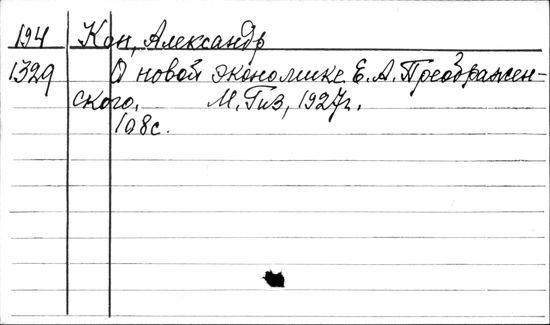 194 Кон, Александр
1329 О новой экономике Е. А. Преображен-
ского. М. Гиз, 1927г.
108с.